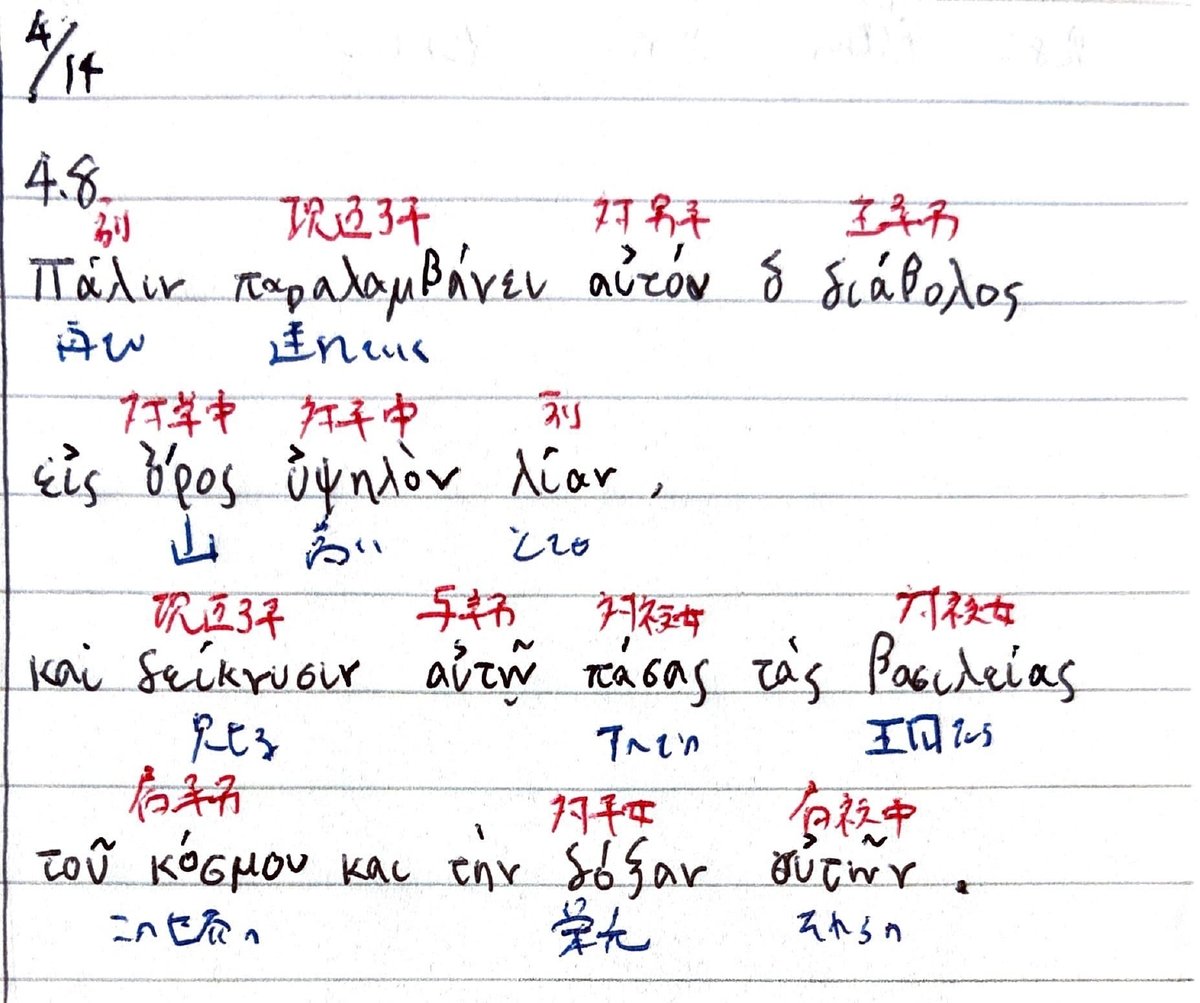 4/14
4.8
副 現直3単 対男単 主単男
Πάλιν παραλαμβάνει αὐτόν ὁ διάβολος
再び 連れていく
対単中 対単中 副
εἰς ὄρος ὑψηλὸν λίαν ,
山 高い とても
現直3単 与単男 対複女 対複女
καὶ δείκνυσιν αὐτῷ πάσας τὰς βασιλείας
見せる すべての 王国たち
属単男 対単女 属複中
τοῦ κόσμου και τὴν δόξαν αὐτῶν .
この世界の 栄光 それらの